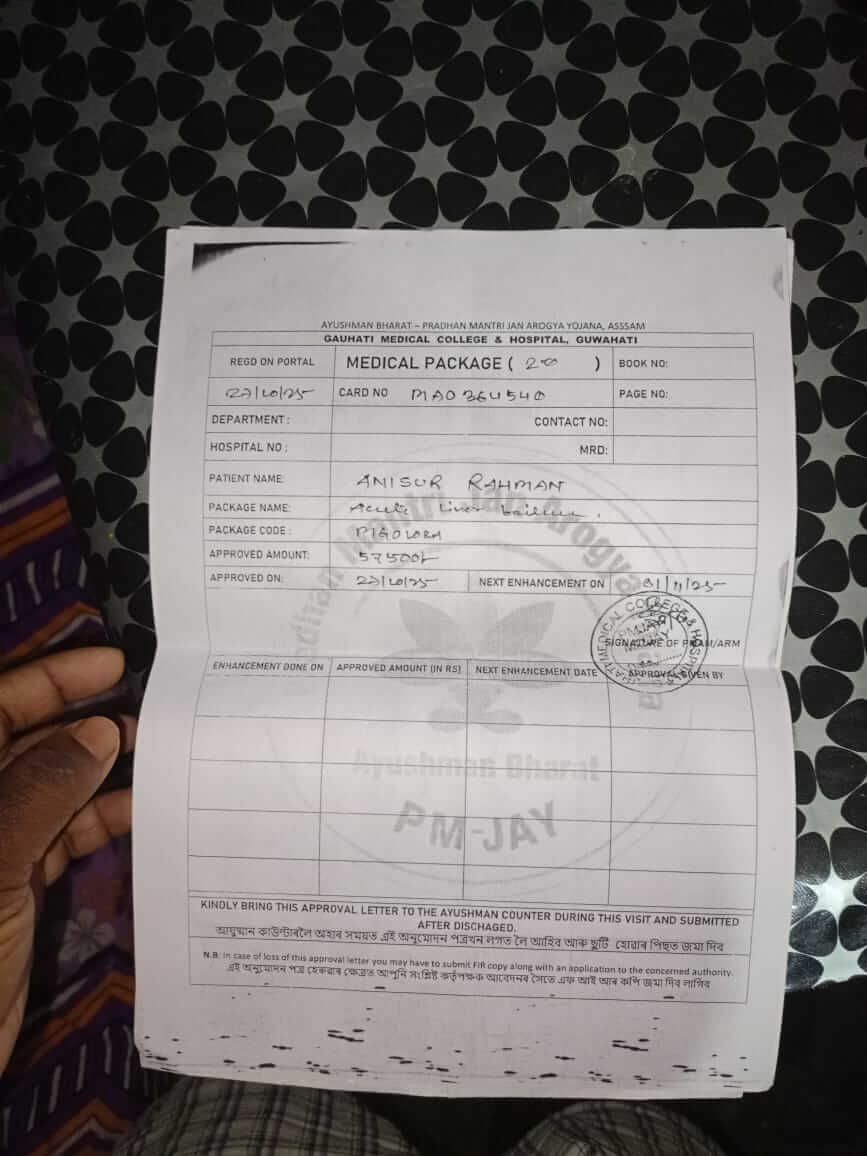 AYUSHMAN BHARAT – PRADHAN MANTRI JAN AROGYA YOJANA, ASSSAM
GAUHATI MEDICAL COLLEGE & HOSPITAL, GUWAHATI
REGD ON PORTAL MEDICAL PACKAGE ( 20 ) BOOK NO:
27/10/25 CARD NO PAGE NO:
DEPARTMENT : CONTACT NO:
HOSPITAL NO : MRD:
PATIENT NAME: ANISUR RAHMAN
PACKAGE NAME: Acute Liver failure.
PACKAGE CODE :
APPROVED AMOUNT:
APPROVED ON: 27/10/25 NEXT ENHANCEMENT ON 01/11/25
SIGNATURE OF PMAM/ARM
ENHANCEMENT DONE ON APPROVED AMOUNT (IN RS) NEXT ENHANCEMENT DATE APPROVAL GIVEN BY
Ayushman Bharat
PM-JAY
KINDLY BRING THIS APPROVAL LETTER TO THE AYUSHMAN COUNTER DURING THIS VISIT AND SUBMITTED
AFTER DISCHAGED.
আয়ুষ্মান কাউন্টাৰলৈ অহাৰ সময়ত এই অনুমোদন পত্ৰখন লগত লৈ আহিব আৰু ছুটি হোৱাৰ পিছত জমা দিব
N.B: In case of loss of this approval letter you may have to submit FIR copy along with an application to the concerned authority.
এই অনুমোদন পত্ৰ হেৰুৱাৰ ক্ষেত্ৰত আপুনি সংশ্লিষ্ট কৰ্তৃপক্ষক আবেদনৰ সৈতে এফ আই আৰ কপি জমা দিব লাগিব